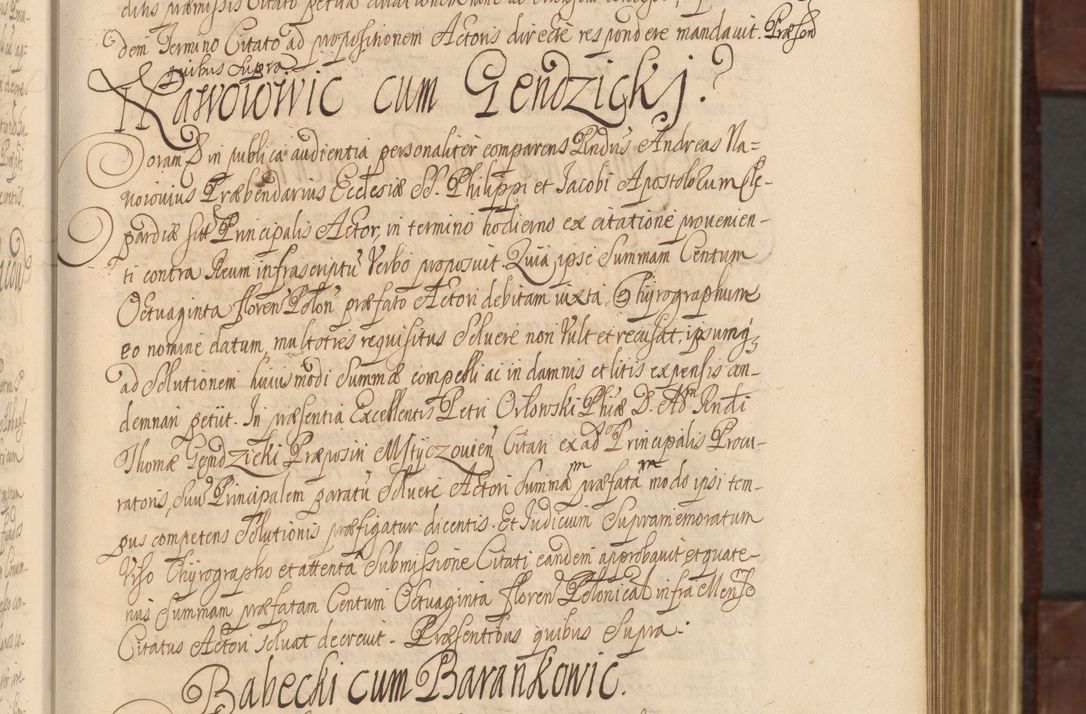 ditis præmissis Citato petita
dem Termino Citato ad propositionem Actoris directè respondere mandavit. Præsen
quibus supra
Nawoiowic cum Gendzickj.
Coram D in publica audientia personalitèr comparens Rndus Andreas Na=
uoiouius Præbendarius Ecclesiæ SS. Philippi et Jacobi Apostolorum Cle-
pardiæ sitæ Principalis Actor, in termino hodierno ex citatione prouenien-
ti contra Reum infrascriptũ Verbo proposuit. Quia ipse Summam Centum
Octuaginta floren Polon præfato Actori debitam iuxta Chyrographum
eo nomine datum, multoties requisitus Soluere non Vult et recusat, ipsumq3
ad Solutionem huiusmodi Summæ compelli ac in damnis et litis expensis con-
demnari petijt. In præsentia Excellentis Petri Orlowski Phiæ D. et Adm Rndi
Thomæ Gendzicki Præpositi Mstyczouien Citati ex ad Principalis Procu-
ratoris, suũ Principalem paratũ Soluere Actori Summam præfatam modo ipsi tem-
pus competens Solutionis præfigatur dicentis. Et Judicium Supramemoratum
Viso Chyrographo et attenta Submissione Citati eandem approbauit et quate-
nus Summam præfatam Centum Octuaginta floren Polonical infra Mensē
Citatus Actori soluat decreuit. Præsentibus quibus Supra.
Babecki cum Barankowic.